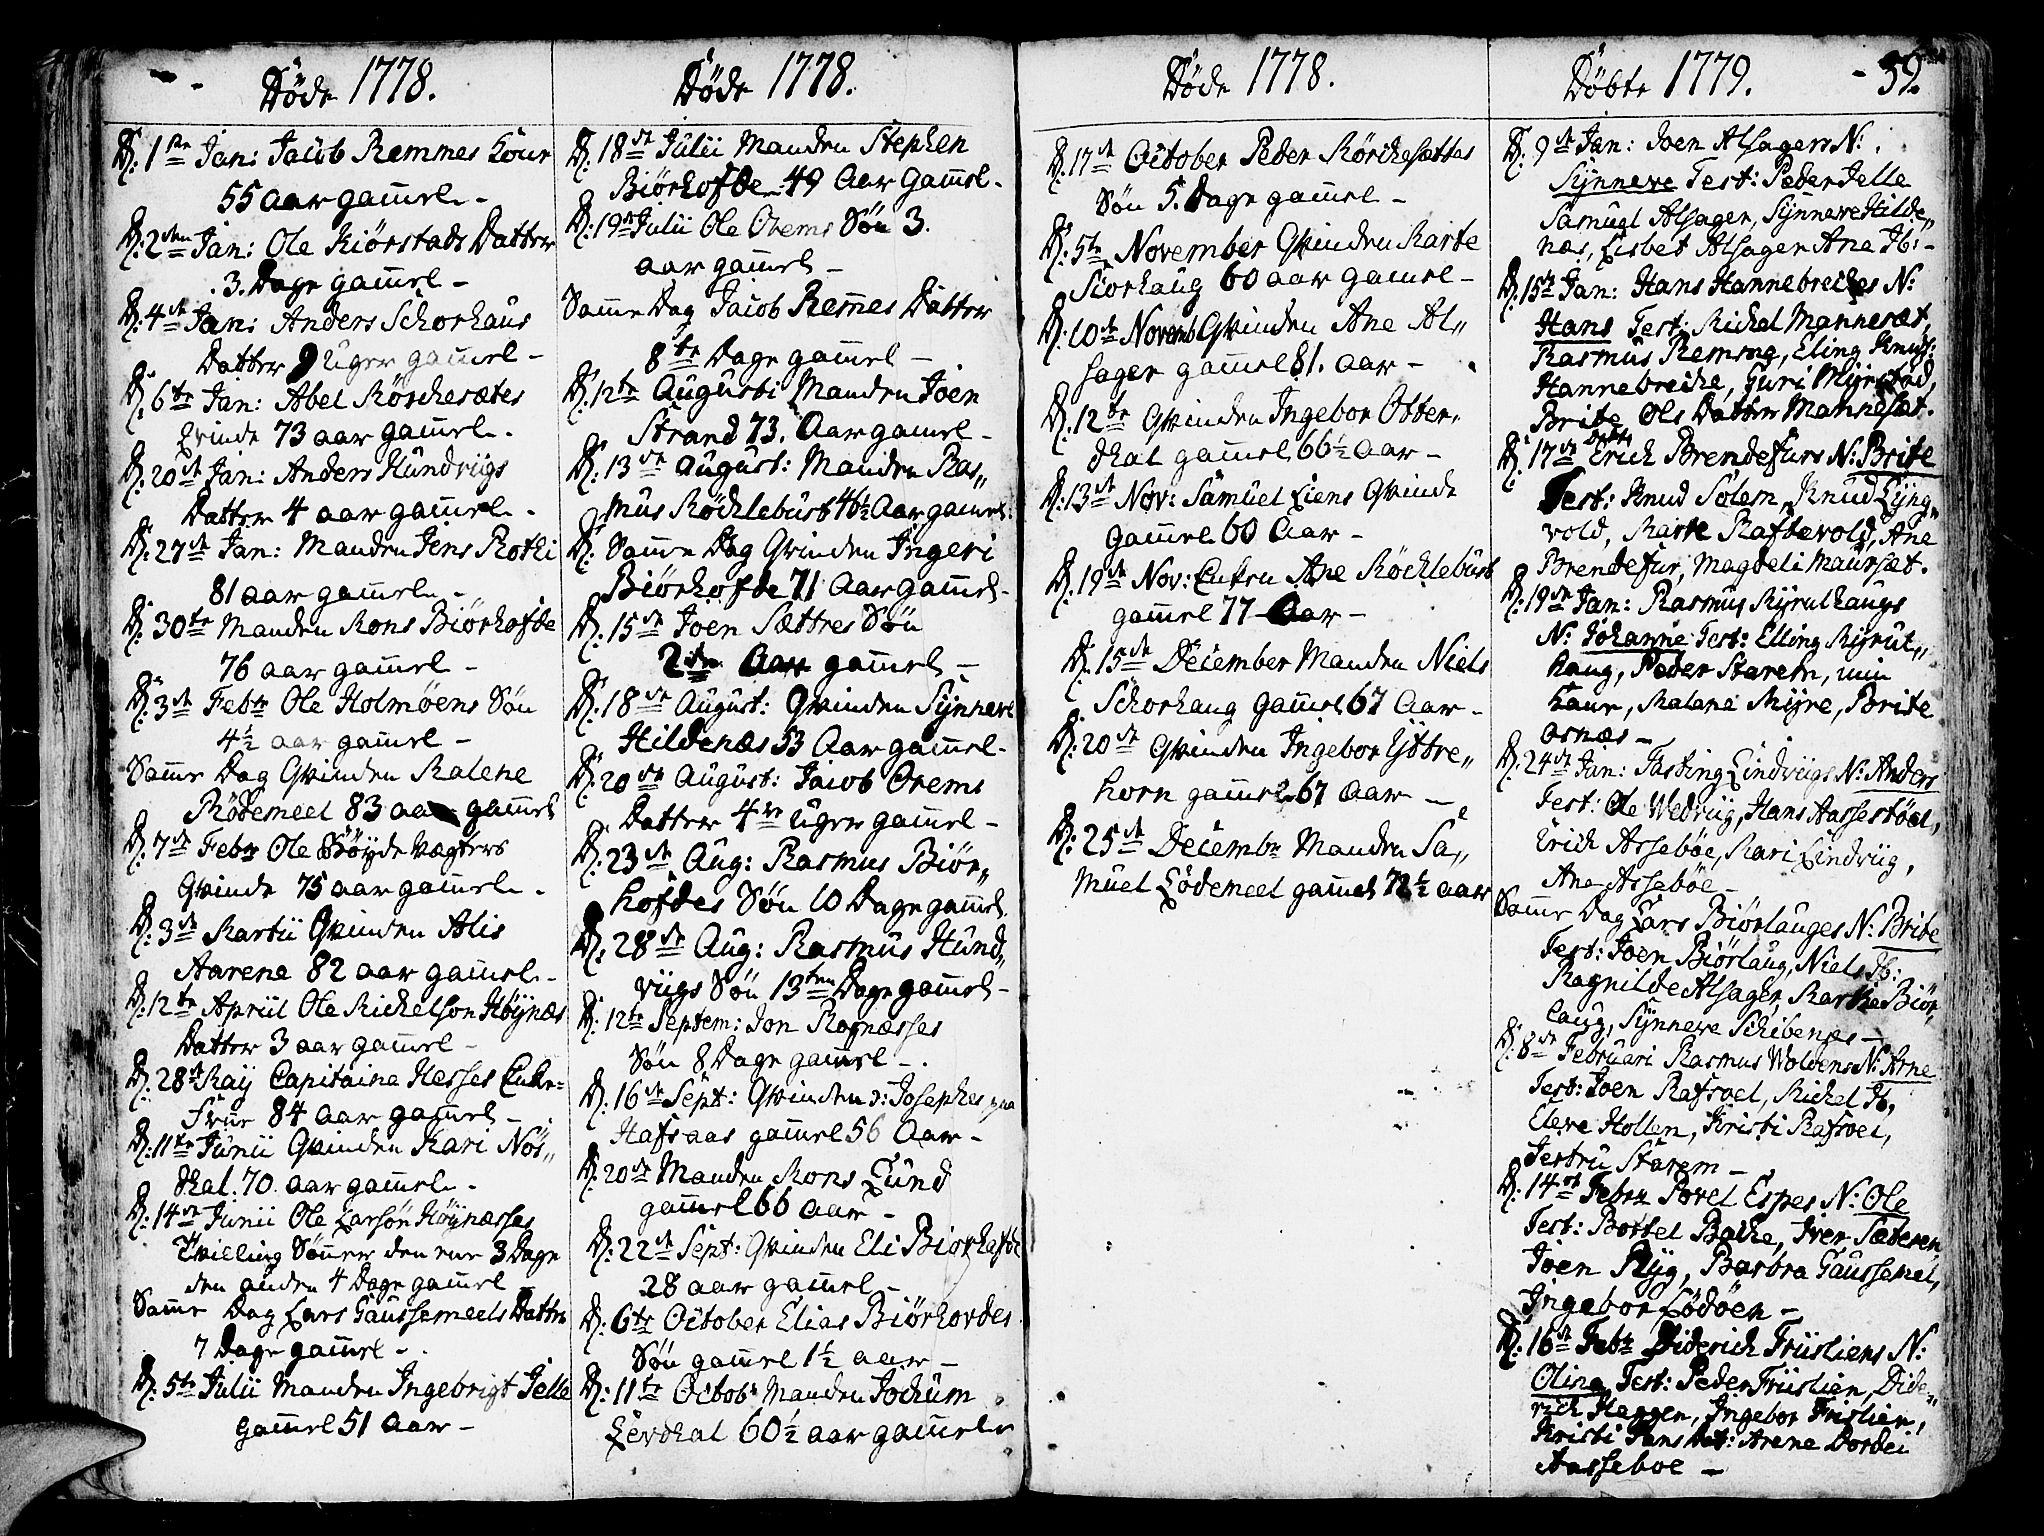 Døde 1778.
D: 1ste Jan: Jacob Remmes Kone
55 aar gam̄el.
D: 2den Jan: Ole Kiørstads Datter
3. Dage gam̄el
D: 4de Jan: Anders Schorhaus
Datter 9 uger gam̄el
D: 6te Jan: Abel Rørchesætes
Qvinde 73 aar gam̄el.
D: 20de Jan: Anders Hundviigs
Datter 4 aar gam̄el.
D: 27de Jan: Manden Jens Rothi
81 aar gam̄el.
D: 30te Manden Mons Biørhofde
76 aar gam̄el
D: 3de Febr Ole Holmøens Søn
4½ aar gam̄el
Sam̄e Dag Qvinden Malene
Rødemeel 83 aar gam̄el
D: 7de Febr Ole Bøyde Vægters
Qvinde 75 aar gam̄el.
D: 3de Martii Qvinden Alis
Aarene 82 aar gam̄el.
D: 12te Apriil Ole Michelson Høynæs
Datter 3 aar gam̄el
D: 28de May Capitaine Hesses Enke-
Frue 84 aar gam̄el
D: 11te Junii Qvinden Kari Nøs„
dhal. 70 aar gam̄el.
D: 14de Junii Ole Larsøn Høynæsses
Tvilling Søn̄er den ene 3 Dage
den anden 4 Dage gam̄el
Sam̄e Dag Lars Gaussemeels Datter
7 Dage gam̄el
D: 5te Julii Manden Ingebrigt Jelle
gam̄el 51 aar
Døde 1778.
D: 18de Julii Manden Stephen
Biørhofde 49 Aar Gam̄el.
D: 19de Julii Ole Orems Søn 3.
aar gam̄el
Sam̄e Dag Jacob Rem̄es Datter
8te Dage gam̄el
D: 12te Augusti Manden Joen
Strand 73. Aar gam̄el
D: 13de August: Manden Ras„
mus Røchlebust 46½ Aar gam̄el.
D: Sam̄e Dag Qvinden Ingeri
Biørhofde 71 Aar gam̄el.
D: 15de Joen Sættres Søn
2de Aar gam̄el
D: 18de August: Qvinden Synneve
Hildenæs 53 Aar gam̄el.
D: 20de August: Jacob Orems
Datter 4re Uger gam̄el
D: 23de Aug: Rasmus Biør„
hofdes Søn 10 Dage gam̄el.
D: 28de Aug: Rasmus Hund„
viigs Søn 13ten Dage gam̄el
D: 12te Septem: Jon Rafnæsses
Søn 8 Dage gam̄el
D: 16de Sept: Qvinden Josephes paa
Hafsaas gam̄el 56 Aar
D: 20de Manden Mons Lund
gam̄el 66 aar
D: 22de Sept: Qvinden Eli Biørhofde
28 aar gam̄el
D: 6te October Elias Biørhordes
Søn gam̄el 1½ aar
D: 11te Octobr Manden Jochum
Levdhal 60½ aar gam̄el
Døde 1778.
D: 17de October Peder Rørchesættes
Søn 5. Dage gam̄el
D: 5te November Qvinden Marte
Siorhaug 60 aar gam̄el
D: 10de Novemb Qvinden Ane Al„
sager gam̄el 81. aar
D: 12te Qvinden Ingebor Otter„
dhal gam̄el 66½ aar
D: 13de Nov: Samuel Liens Qvinde
Gam̄el 60 Aar
D: 19de Nov: Enken Ane Røchlebust
gam̄el 77 Aar
D: 15de December Manden Niels
Schorhaug Gam̄el 67 Aar.
D: 20de Qvinden Ingebor Yttre„
horn gam̄el 67 Aar
D: 25de Decembr Manden Sa„
muel Lødemeel gam̄el 72½ aar
Døbte 1779. 39.
D: 9de Jan: Joen Alsagers N:
Synneve Test: Peder Jelle
Samuel Alsager, Synneve Hilde„
næs, Lisbet Alsager Ane Ib:
D: 15de Jan: Hans Hannebreckes N:
Hans Test: Michel Mannesæt,
Rasmus Remme, Eling Knuds:
Hannebreche, Guri Myrstad,
Brite Ols Datter Mannesæt.
D: 17de Døbte Erich Brendefurs N: Brite
Test: Knud Solem, Knud Lyng„
vold, Marte Raftevold, Ane
Brendefur, Magdeli Maursæt.
D: 19de Jan: Rasmus Myrulhaugs
N: Johanne Test: Elling Myrul„
haug, Peder Starem, min
Kone, Malene Myre, Brite
Osnæs
D: 24de Jan: Tasting Lindviigs N: Anders
Test: Ole Wedviig, Hans Aassestøel,
Erich Assebøe, Kari Lindviig,
Ane Assebøe
Sam̄e Dag Lars Biørlauges N: Brite
Test: Joen Biørlaug, Niels Ib:
Ragnilde Alsager, Marthe Biør„
laug, Synneve Schibenes
D: 8de Februari Rasmus Woldens N: Arne
Test: Joen Rafsvel, Michel Ib,
Eleve Hollen, Kristi Rafsvel,
Jertru Starem
D: 14de Febru Povel Espes N: Ole
Test: Bottel Bakke, Iver Sæteren
Joen Ryg, Barbra Gaussemel,
Ingebor Lødøen
D: 16de Febr Diderich Friisliens N:
Olina Test: Peder Friislien, Dide„
rich Haggen, Ingebor Friislien,
Kristi Hans Dat: Arene Dordei
Aasseboe